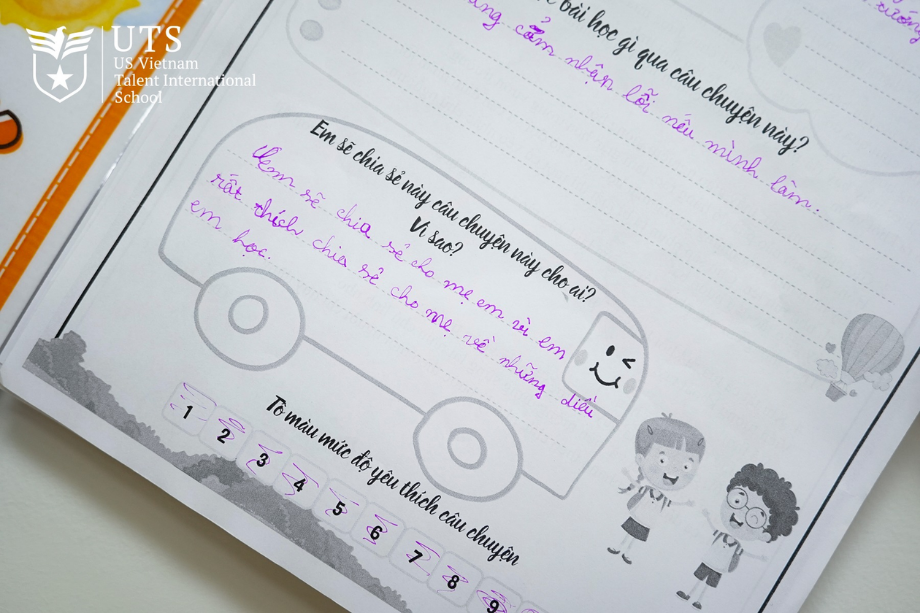 UTS
US Vietnam
Talent International
School
bài học gì qua câu chuyện này?
cảm nhận lỗi nếu mình làm.
Em sẽ chia sẻ này câu chuyện này cho ai?
Vì sao?
Em sẽ chia sẻ cho mẹ em vì em
rất thích chia sẻ cho mẹ về những điều
em học.
Tô màu mức độ yêu thích câu chuyện
1 2 3 4 5 6 7 8 9